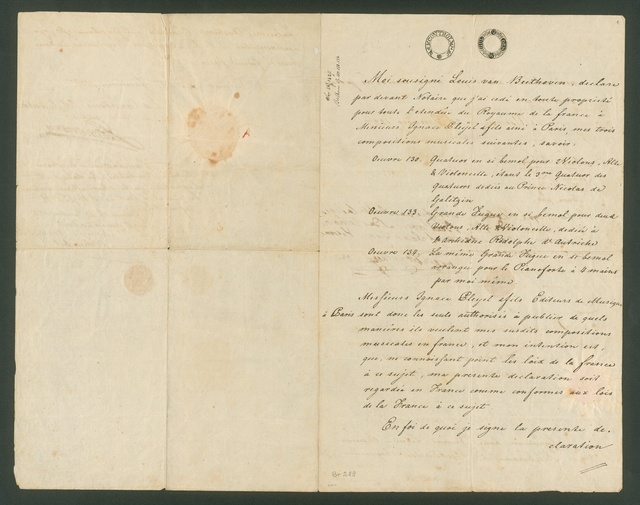 Moi susigné Louis van Beethoven, declare
par devant Notaire que j'ai cedé en toute proprieté
pour toute l'etendue du Royaume de la france à
Messieurs Ignace Pleijel & fils ainé à Paris, mes trois
compositions musicales suivantes, savoir.
Oeuvre 130. Quatuor en si bemol pour Violons, Alte
& Violoncelle, étant le 3me Quatuor des
Quatuors dediés au Prince Nicolas de
Galitzin
Oeuvre 133. Grande Fugue en si bemol pour deux
Violons, Alte & Violoncelle, dediée à
l'archiduc Rodolphe d'Autriche
Oeuvre 134. La même Grande Fugue en si bemol
arrangée pour le Pianoforte à 4 mains
par moi même.
Messieurs Ignace Pleyel & fils Editeurs de Musique
à Paris sont donc les seuls authorisés à publier de quels
manières ils veulent mes susdits compositions
musicales en france, et mon intention est,
que, ne connoissant point les loix de la france
à ce sujet, ma presente declaration soit
regardée en France comme conforme aux lois
de la France à ce sujet.
En foi de quoi je signe la presente de-
claration